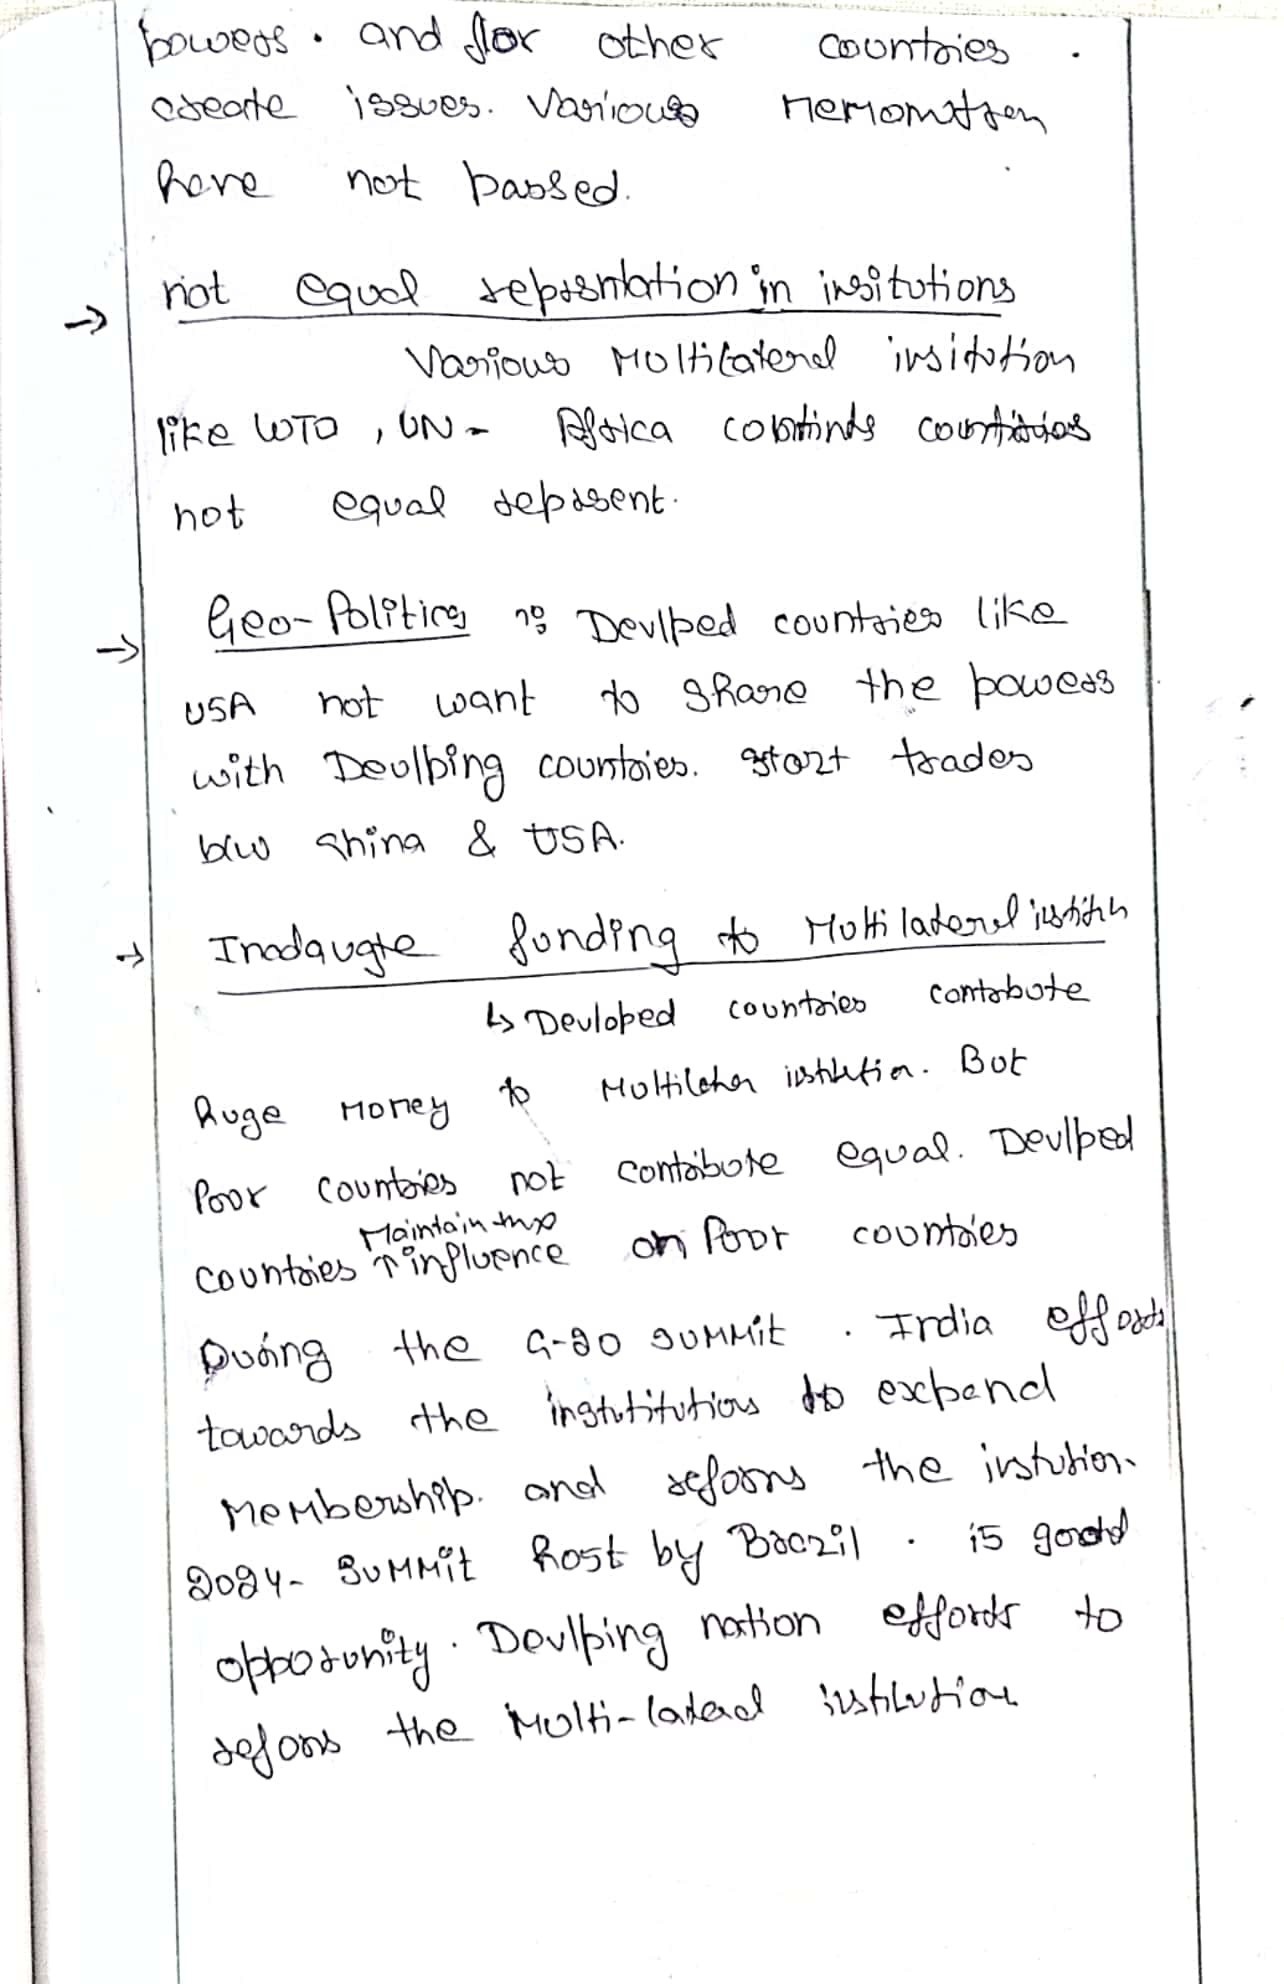 powers. and for other countries.
create issues. Various
have not passed.
→ not equal represntation in insitutions
Various Multilateral insitution
like WTO, UN - Africa countries
not equal reprsent.
→ Geo-Politics :- Devlped countries like
USA not want to share the powers
with Devlping countries. start trades
b/w China & USA.
→ Inadauqte funding to Multi lateral
↳ Devloped countries contrbute
huge money to But
Poor countries not contribute equal. Devlped
Maintain the
countries ↑ influence on Poor countries
During the G-20 summit. India efforts
towards the instutitutions to expand
Membership. and reforms the instution.
2024- Summit host by Brazil. is good
opporunity. Devlping nation efforts to
refors the Multi-lateral institution